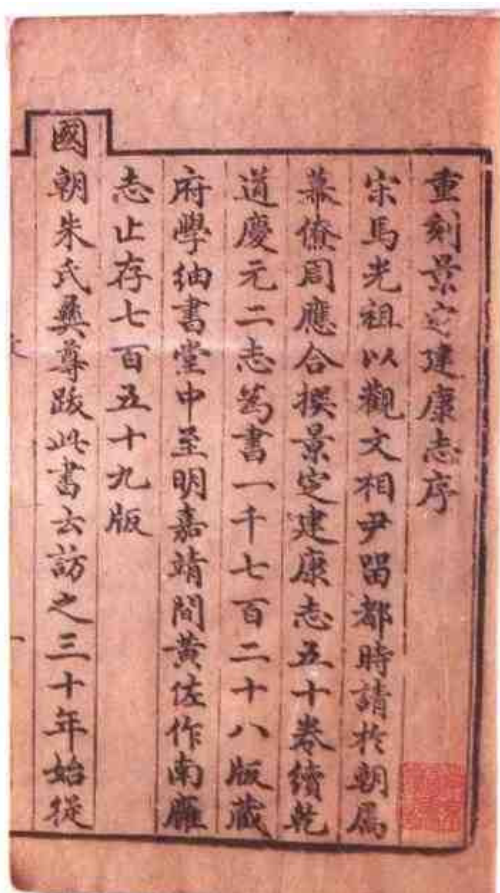 重刻景定建康志序
宋馬光祖以觀文相尹畱都時請扵朝屬
幕僚周應合撰景定建康志五十卷續乾
道慶元二志爲書一千七百二十八版藏
府學紬書堂中至明嘉靖間黃佐作南廱
志止存七百五十九版
國朝朱氏彝尊跋此書云訪之三十年始從